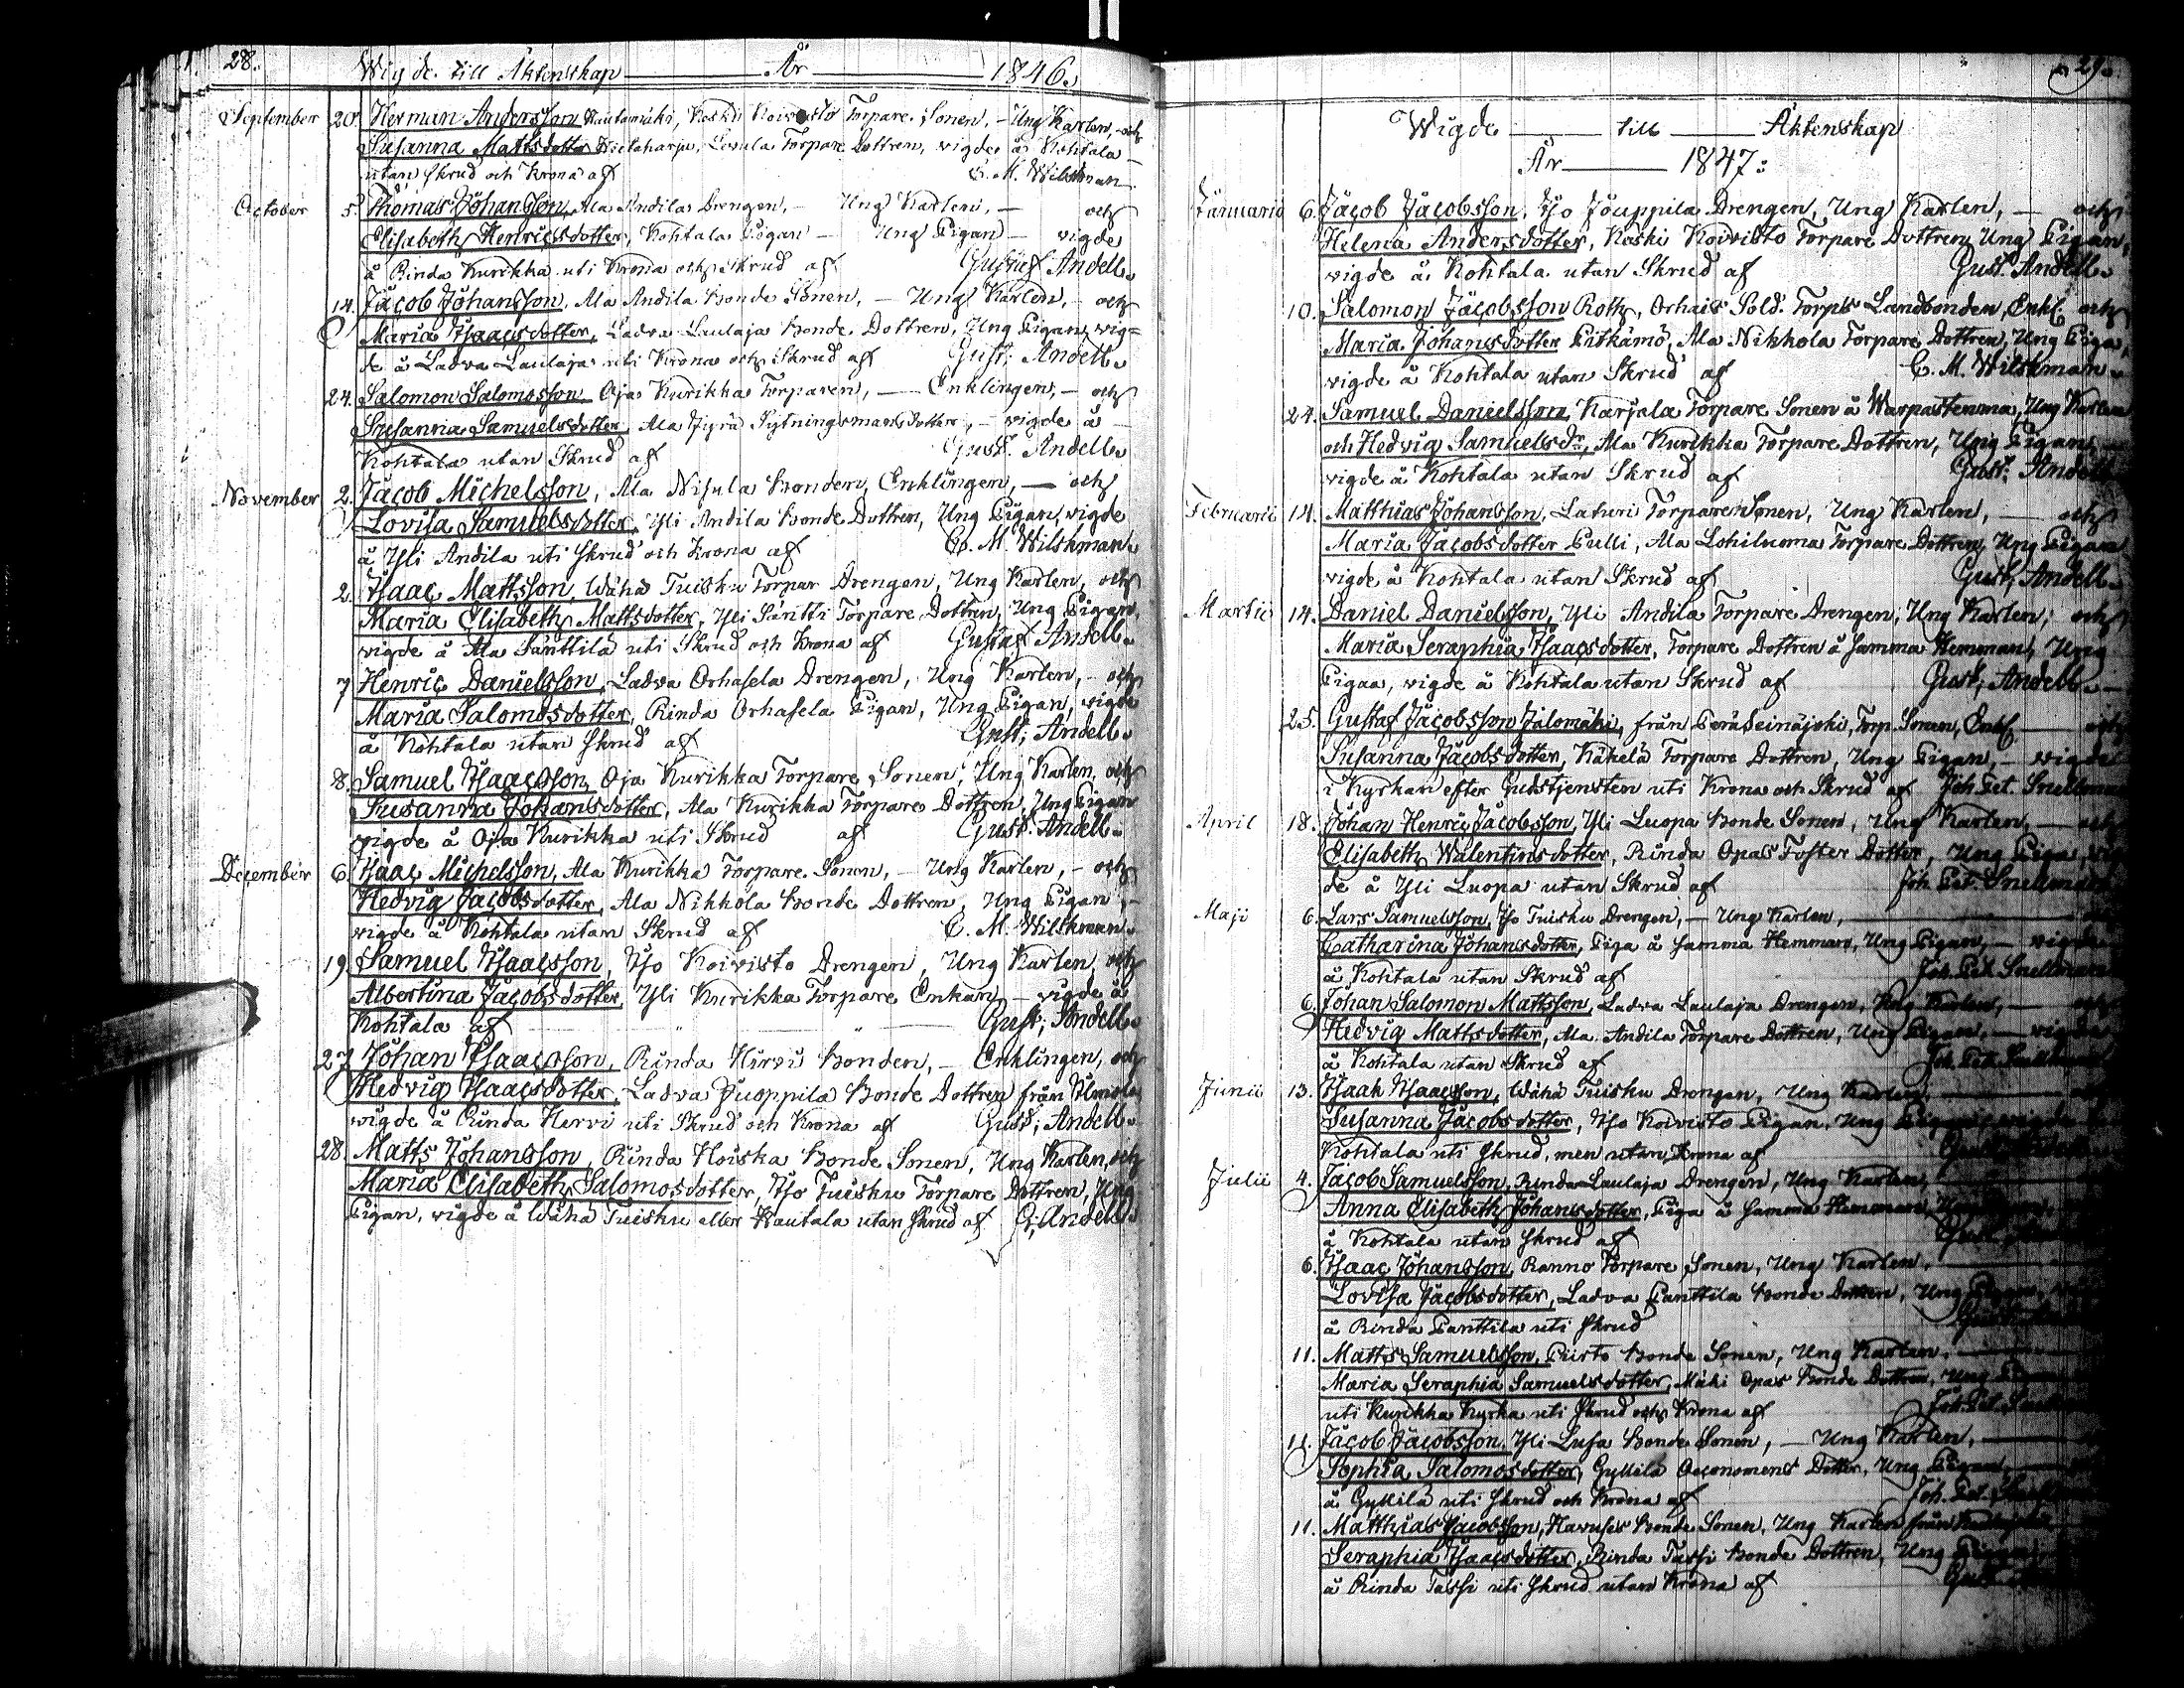 28.
Wigde till Äktenskap År 1846.
September 20. Herman Andersson Rautamäki, Keski Koivisto Torpare Sonen, - Ung Karlen, och
Susanna Mattsdotter Kieläharju, Levula Torpare Dottren, vigde å Kohtala
utan skrud och Krona af C. M. Wilskman.
October 5. Thomas Johansson, Ala Andila Drengen, - Ung Karlen, - och
Elisabeth Henricsdotter, Kohtala Pigan - Ung Pigan - vigde
å Rinda Kurikka uti Krona och Skrud af Gustaf Andell.
14. Jacob Johansson, Ala Andila Bonde Sonen, - Ung Karlen, - och
Maria Isaacsdotter, Ladva Laulaja Bonde Dottren, Ung Pigan, vig=
de å Ladva Laulaja uti Krona och Skrud af Gust; Andell.
24. Salomon Salomosson Oja Kurikka Torparen, - Enklingen, - och
Susanna Samuelsdotter, Ala Jyrä Sytningsmansdotter, - vigde å
Kohtala utan Skrud af Gust. Andell.
November 2. Jacob Michelsson, Ala Nisula Bonden, Enklingen, - och
Lovisa Samuelsdotter, Yli Andila Bonde Dottren, Ung Pigan, vigde
å Yli Andila uti Skrud och Krona af C. M. Wilskman.
2. Isaac Mattsson, Wähä Tuisku Torpar Drengen, Ung Karlen, och
Maria Elisabeth Mattsdotter, Yli Säntti Torpare Dottren, Ung Pigan,
vigde å Ala Sänttilä uti Skrud och Krona af Gustaf Andell.
7 Henric Danielsson, Ladva Orhasela Drengen, Ung Karlen, - och
Maria Salomosdotter, Rinda Orhasela Pigan, Ung Pigan, vigde
å Kohtala utan Skrud af Gust; Andell.
8. Samuel Isaacsson, Oja Kurikka Torpare Sonen, Ung Karlen, och
Susanna Johansdotter, Ala Kurikka Torpare Dottren, Ung Pigan
vigde å Oja Kurikka uti Skrud af Gust. Andell.
December 6. Isaac Michelsson, Ala Kurikka Torpare Sonen, - Ung Karlen, - och
Hedvig Jacobsdotter, Ala Nikkola Bonde Dottren, Ung Pigan, -
vigde å Kohtala utan Skrud af C. M. Wilskman.
19. Samuel Isaacsson, Iso Koivisto Drengen, Ung Karlen, och
Albertina Jacobsdotter, Yli Kurikka Torpare Enkan, - vigde å
Kohtala af Gust; Andell.
27. Johan Isaacsson, Rinda Hirvi Bonden, - Enklingen, och
Hedvig Isaacsdotter, Ladva Juoppila Bonde Dottren från Ilmola
vigde å Rinda Hervi uti Skrud och Krona af Gust; Andell.
28. Matts Johansson, Rinda Hoiska Bonde Sonen, Ung Karlen, och
Maria Elisabeth Salomosdotter, Iso Tuisku Torpare Dottren, Ung
Pigan, vigde å Wähä Tuisku eller Rautala utan Skrud af G; Andell.
29.
Wigde till Äktenskap
År 1847:
Januarii 6. Jacob Jacobsson, Iso Jouppila Drengen, Ung Karlen, - och
Helena Andersdotter, Keski Koivisto Torpare Dottren, Ung Pigan,
vigde å Kohtala utan Skrud af Gust. Andell.
10. Salomon Jacobsson Roth, Orhais Sold. Torps Landbonden, Enkl. och
Maria Johansdotter Pitkämö, Ala Nikkola Torpare Dottren, Ung Piga,
vigde å Kohtala utan Skrud af C. M. Wilskman.
24. Samuel Danielsson, Karjala Torpare Sonen å Warpastenma, Ung Karlen
och Hedvig Samuelsdr., Ala Kurikka Torpare Dottren, Ung Pigan,
vigde å Kohtala utan Skrud af Gust. Andell
Februarii 14. Matthias Johansson, Laturi Torparen Sonen, Ung Karlen, - och
Maria Jacobsdotter Pulli, Ala Lohiluoma Torpare Dottren, Ung Pigan
vigde å Kohtala utan Skrud af Gust; Andell.
Martii 14. Daniel Danielsson, Yli Andila Torpare Drengen, Ung Karlen, och
Maria Seraphia Isaacsdotter, Torpare Dottren å samma Hemman, Ung
Pigan, vigde å Kohtala utan Skrud af Gust; Andell.
25. Gustaf Jacobsson Jalomäki, från Peräseinäjoki, Torp. Sonen, Enkl. - och
Susanna Jacobsdotter, Käkelä Torpare Dottren, Ung Pigan, - vigde
i Kyrkan efter Gudstjensten uti Krona och Skrud af Joh. Pet. Snellman
April 18. Johan Henric Jacobsson, Yli Luopa Bonde Sonen, Ung Karlen, - och
Elisabeth Walentinsdotter, Rinda Opas Foster Dotter, Ung Piga, vig
de å Yli Luopa utan Skrud af Joh. Pet. Snellman
Maji 6. Lars Samuelsson, Iso Tuisku Drengen, - Ung Karlen,
Catharina Johansdotter, Piga å samma Hemman, Ung Pigan, - vigde
å Kohtala utan Skrud af Joh. Pet. Snellman
6. Johan Salomon Mattsson, Ladva Laulaja Drengen, Ung Karlen,
Hedvig Mattsdotter, Ala Andila Torpare Dottren, Ung Pigan, - vigde
å Kohtala utan Skrud af Joh. Pet. Snellman
Junii 13. Isaak Isaacsson, Wähä Tuisku Drengen, Ung Karlen,
Susanna Jacobsdotter, Iso Koivisto Pigan, Ung Pigan, vigde
Kohtala uti Skrud, men utan Krona af
Julii 4. Jacob Samuelsson, Rinda Laulaja Drengen, Ung Karlen
Anna Elisabeth Johansdotter, Piga å samma Hemman,
å Kohtala utan Skrud af
6. Isaac Johansson, Ranno Torpare Sonen, Ung Karlen,
Lovisa Jacobsdotter, Ladva Panttila Bonde Dottren, Ung Pigan
å Rinda Panttila uti Skrud
11. Matts Samuelsson, Piirto Bonde Sonen, Ung Karlen,
Maria Seraphia Samuelsdotter, Mäki Opas Bonde Dottren, Ung
uti Kurikka Kyrka uti Skrud och Krona af Joh. Pet.
11. Jacob Jacobsson, Yli Lusa Bonde Sonen, - Ung Karlen,
Sophia Salomosdotter, Gyllilä Oeconomens Dotter, Ung Pigan
å Gyllilä uti Skrud och Krona af Joh. Pet.
11. Matthias Jacobsson, Havuses Bonde Sonen, Ung Karlen från
Seraphia Isaacsdotter, Rinda Tassi Bonde Dottren, Ung
å Rinda Tassi uti Skrud utan Krona af